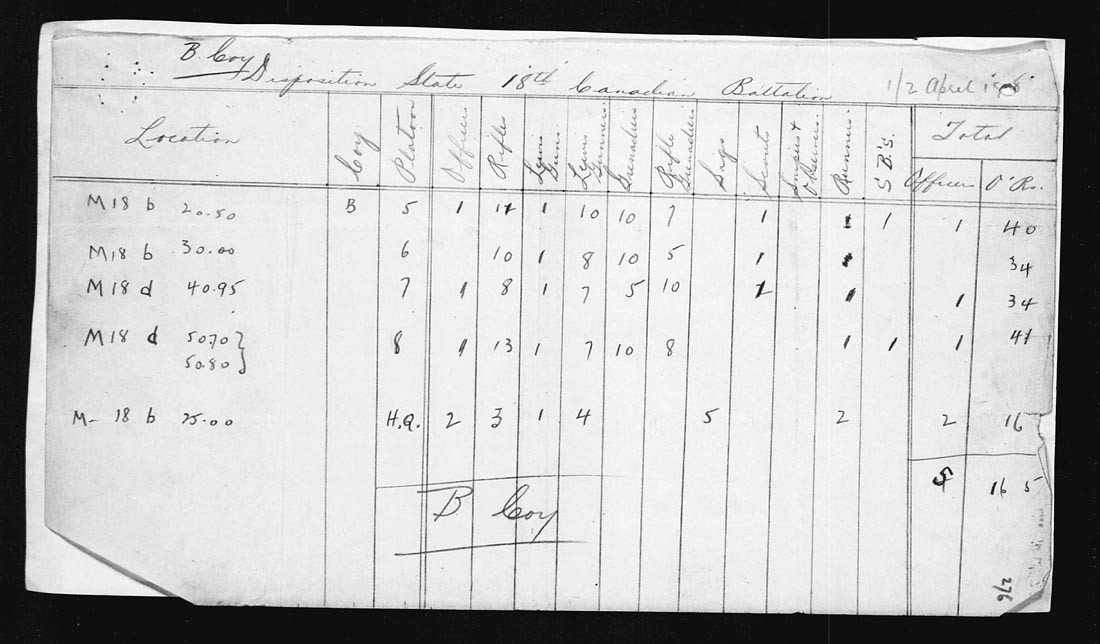 B. Coy Disposition State 18th Canadian Battation 1/2 April
Location Coy Platoon Officers Rifles Lewis Guns Lewis Gunners Grenadiers Rifle Grenadiers Sigs Scouts Snipers & Observers Runners S B's. Total
Officers O'Rs.
M18 b 20.50 B 5 1 11 1 10 10 7 1 1 1 40
M18 b 30.00 6 10 1 8 10 5 1 34
M18 d 40.95 7 1 8 1 7 5 10 1 1 1 34
M18 d 50.70 } 8 1 13 1 7 10 8 1 1 1 41
50.80 }
M- 18 b 25.00 H.Q. 2 3 1 4 5 2 2 16
5 16 5
B Coy
276